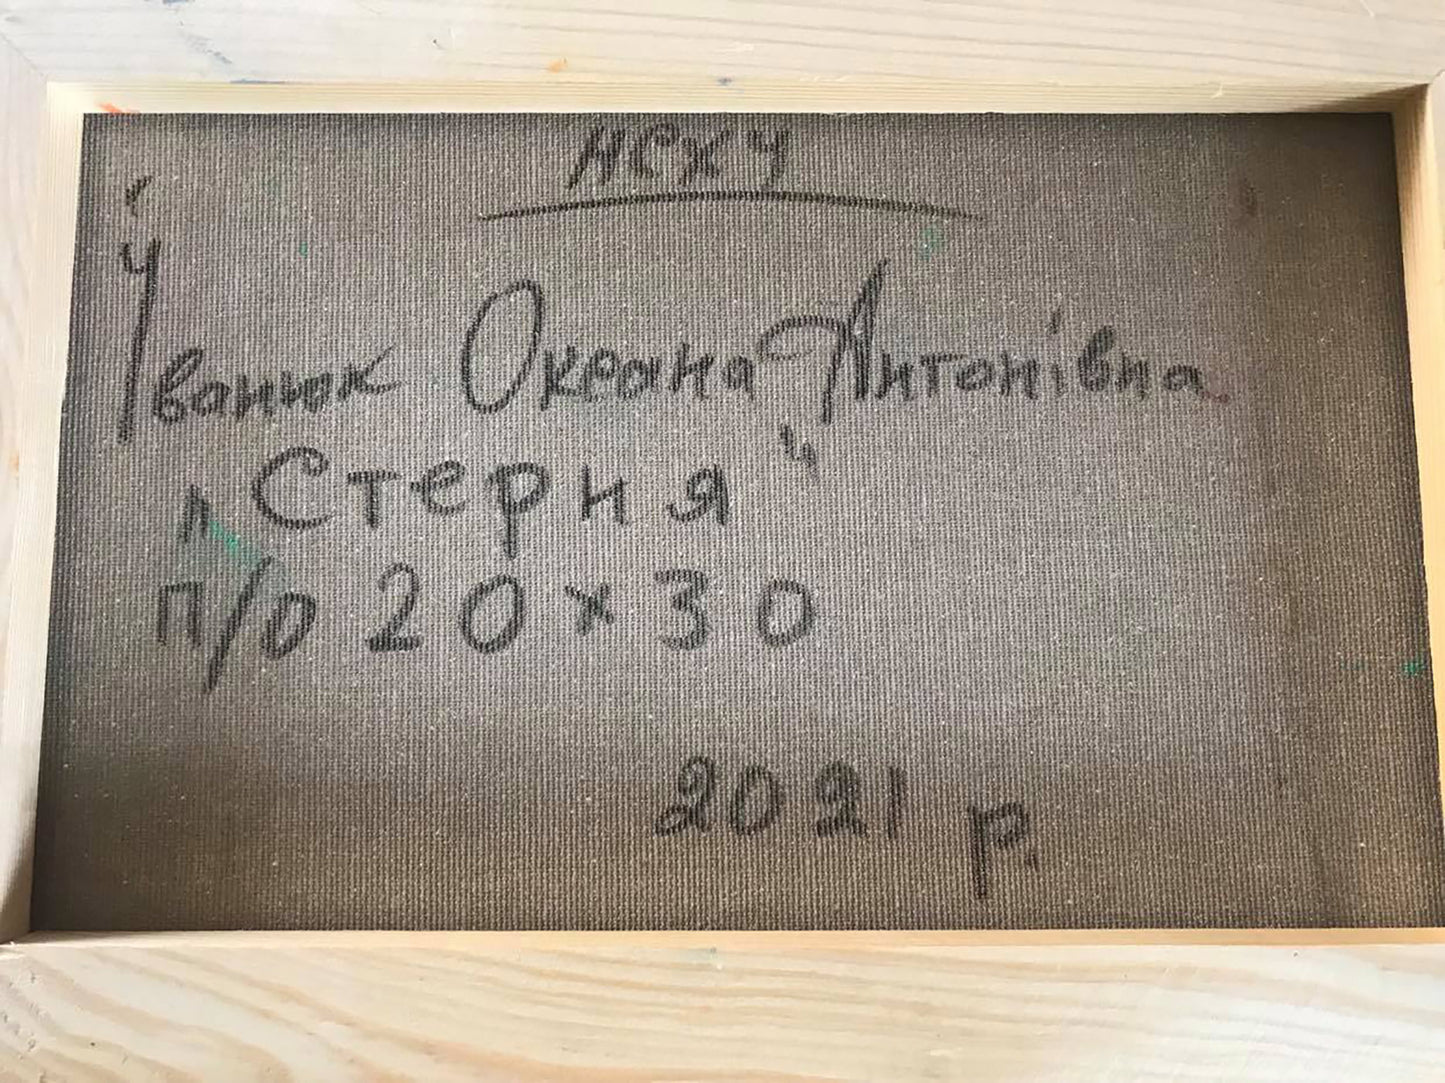 НСХУ
Іванюк Оксана Антонівна
„Стерня"
п/о 20×30
2021 р.